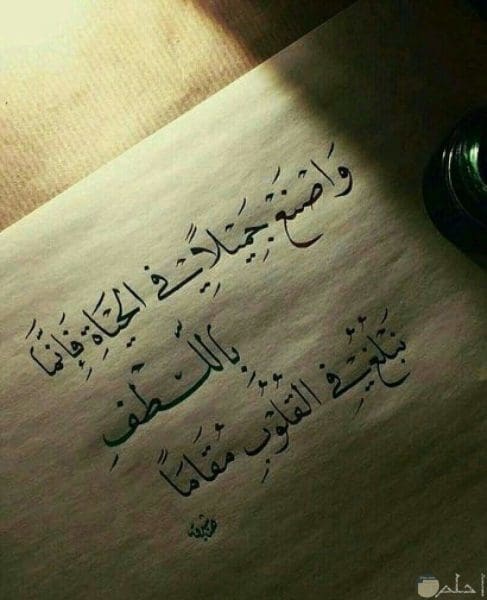 وَاصْنَعْ جَمِيْلاً فِي الحَيَاةِ فَإِنَّمَا
بِاللُّطْفِ
نَبْلُغُ فِي القُلُوْبِ مُقَامَا
احلم